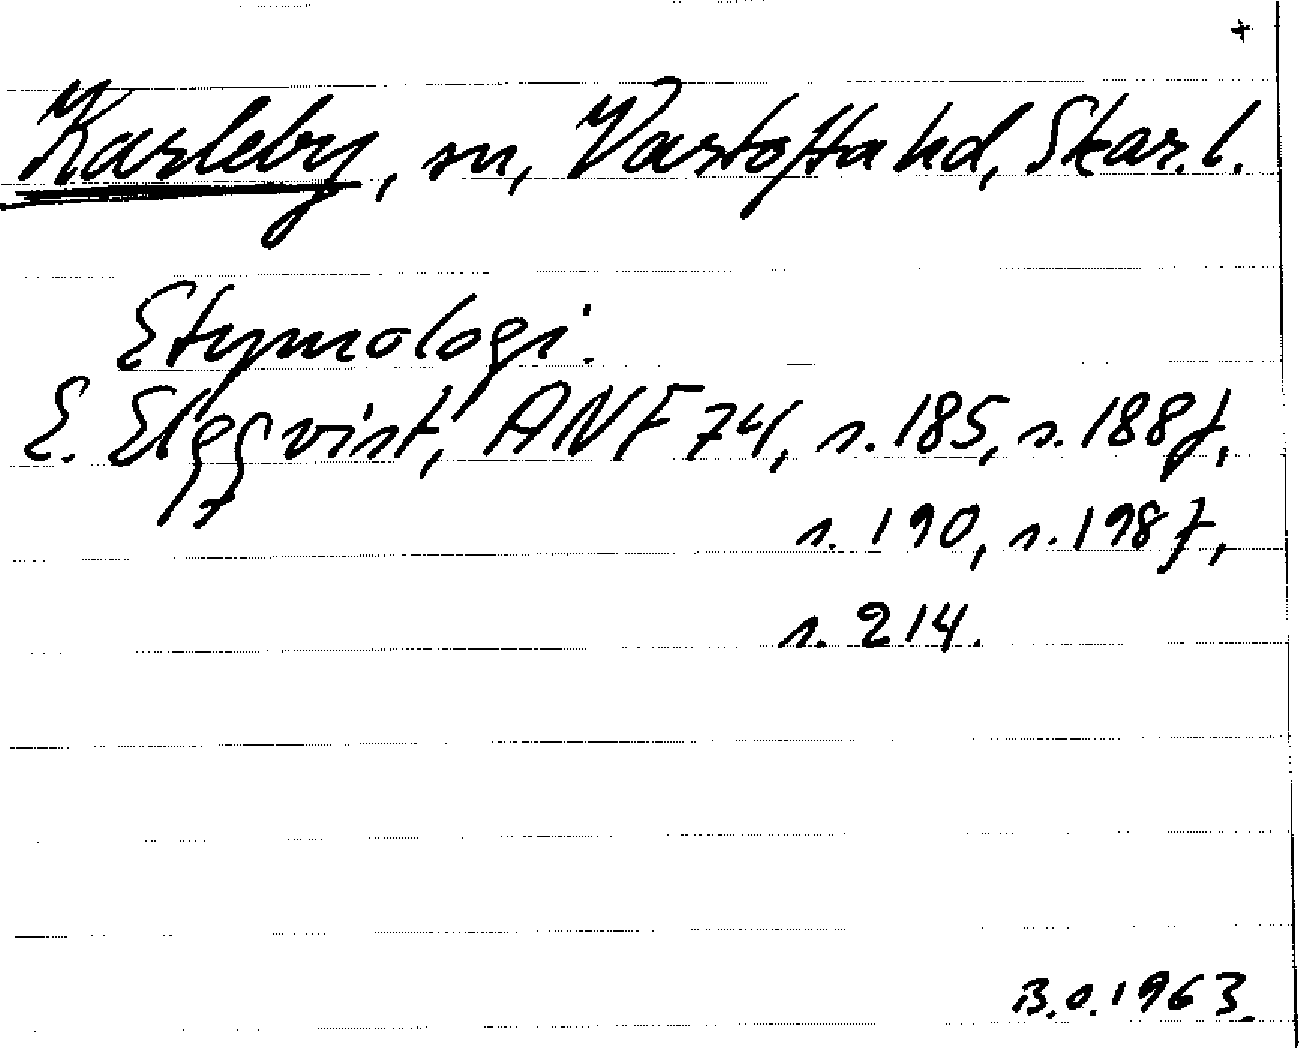 +
Karleby, sn, Vartofta hd, Skar. l.
Etymologi.
E. Elgqvist, ANF 74, s. 185, s. 188 f,
s. 190, s. 198 f,
s. 214.
B.O. 1963.